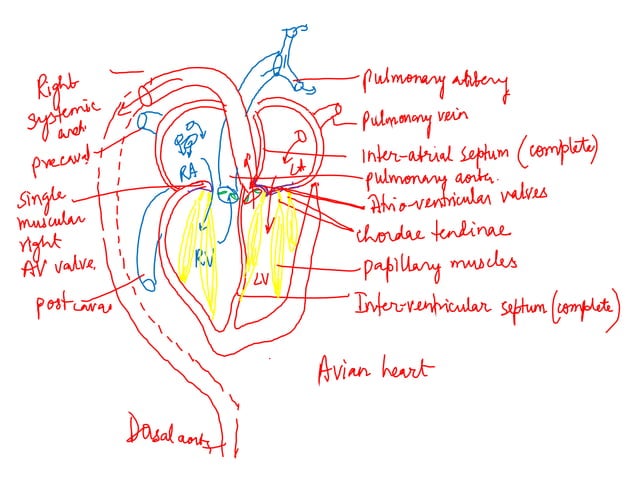 Right
systemic
arch
precaval
single
muscular
right
AV valve
postcaval
Dosal aorta
RA
LA
RV
LV
pulmonary artery
Pulmonary vein
Inter-atrial septum (complete)
pulmonary aorta.
Atrio-ventricular valves
chordae tendinae
papillary muscles
Inter-ventricular septum (complete)
Avian heart